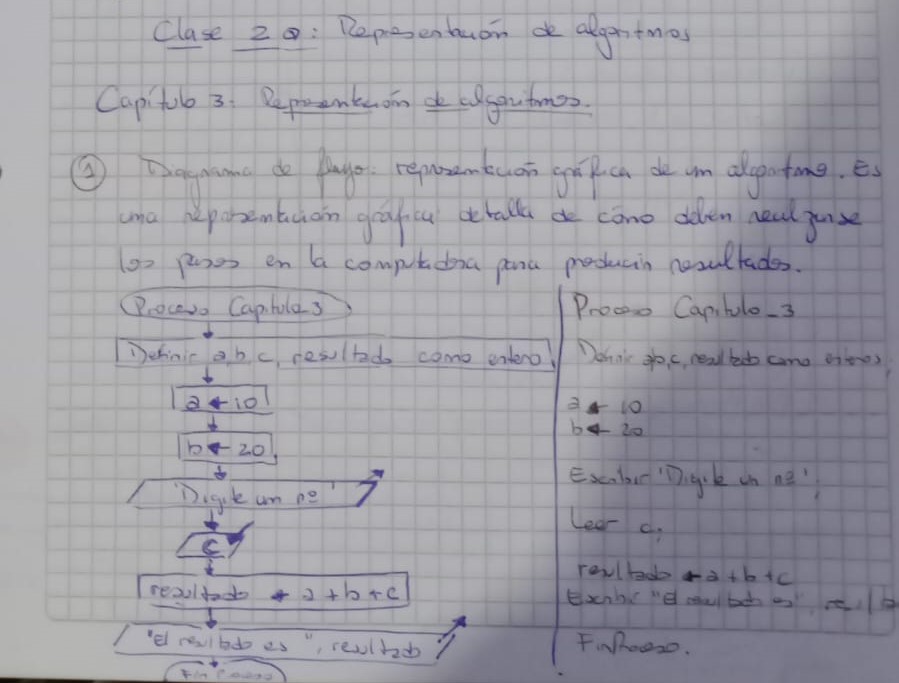 Clase 20: Representación de algoritmos
Capítulo 3: Representación de algoritmos.
1 Diagrama de flujo: representación gráfica de un algoritmo. Es
una representación gráfica detalla de cómo deben realizarse
los pasos en la computadora para producir resultados.
Proceso Capitulo_3
Definir a,b,c, resultado como entero
a ← 10
b ← 20
"Digite un nº"
c
resultado ← a+b+c
"El resultado es", resultado
FinProceso
Proceso Capitulo_3
Definir a,b,c, resultado como enteros;
a ← 10
b ← 20
Escribir 'Digite un nº';
Leer c;
resultado ← a+b+c
Escribir "El resultado es",
FinProceso.